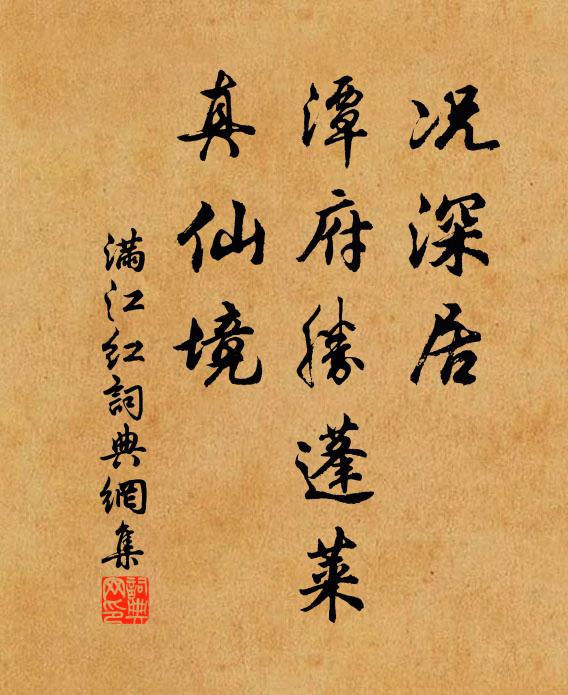 况深居
潭府勝蓬萊
真仙境
滿江紅詞典網集
詞典
网印